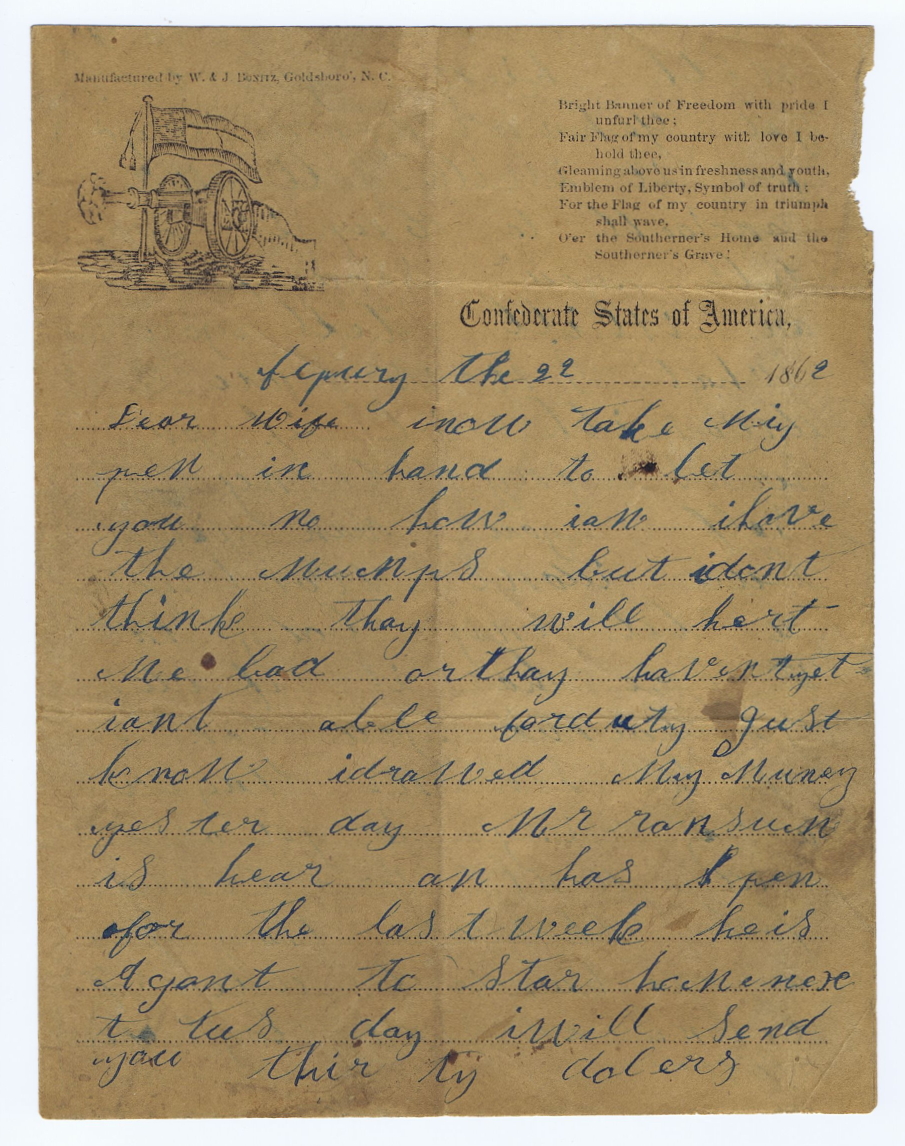 Manufactured by W. & J. Bonitz, Goldsboro', N. C.
Bright Banner of Freedom with pride I
unfurl thee;
Fair Flag of my country with love I be-
hold thee,
Gleaming above us in freshness and youth,
Emblem of Liberty, Symbol of truth;
For the Flag of my country in triumph
shall wave,
O'er the Southerner's Home and the
Southerner's Grave!
Confederate States of America,
fepury the 22 1862
Dear Wife inow take Miy
pen in hand to let
you no how iam ihave
the Mumps but idont
think thay will hert
Me bad or thay havent yet
iant able forduty Just
know idrawed My Muney
yester day Mr ransum
is hear an has pen
for the last week heis
Agant to Star home nexe
t tus day iwill Send
you thir ty dolers